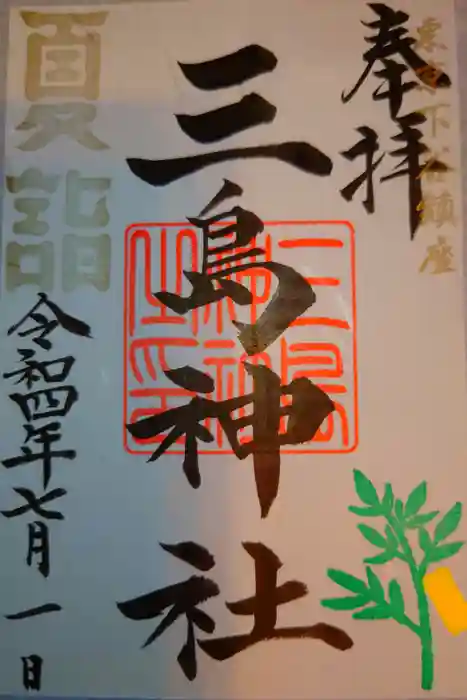 東京下谷鎮座
奉拝
三島神社
三島神社之印
夏詣
令和四年七月一日